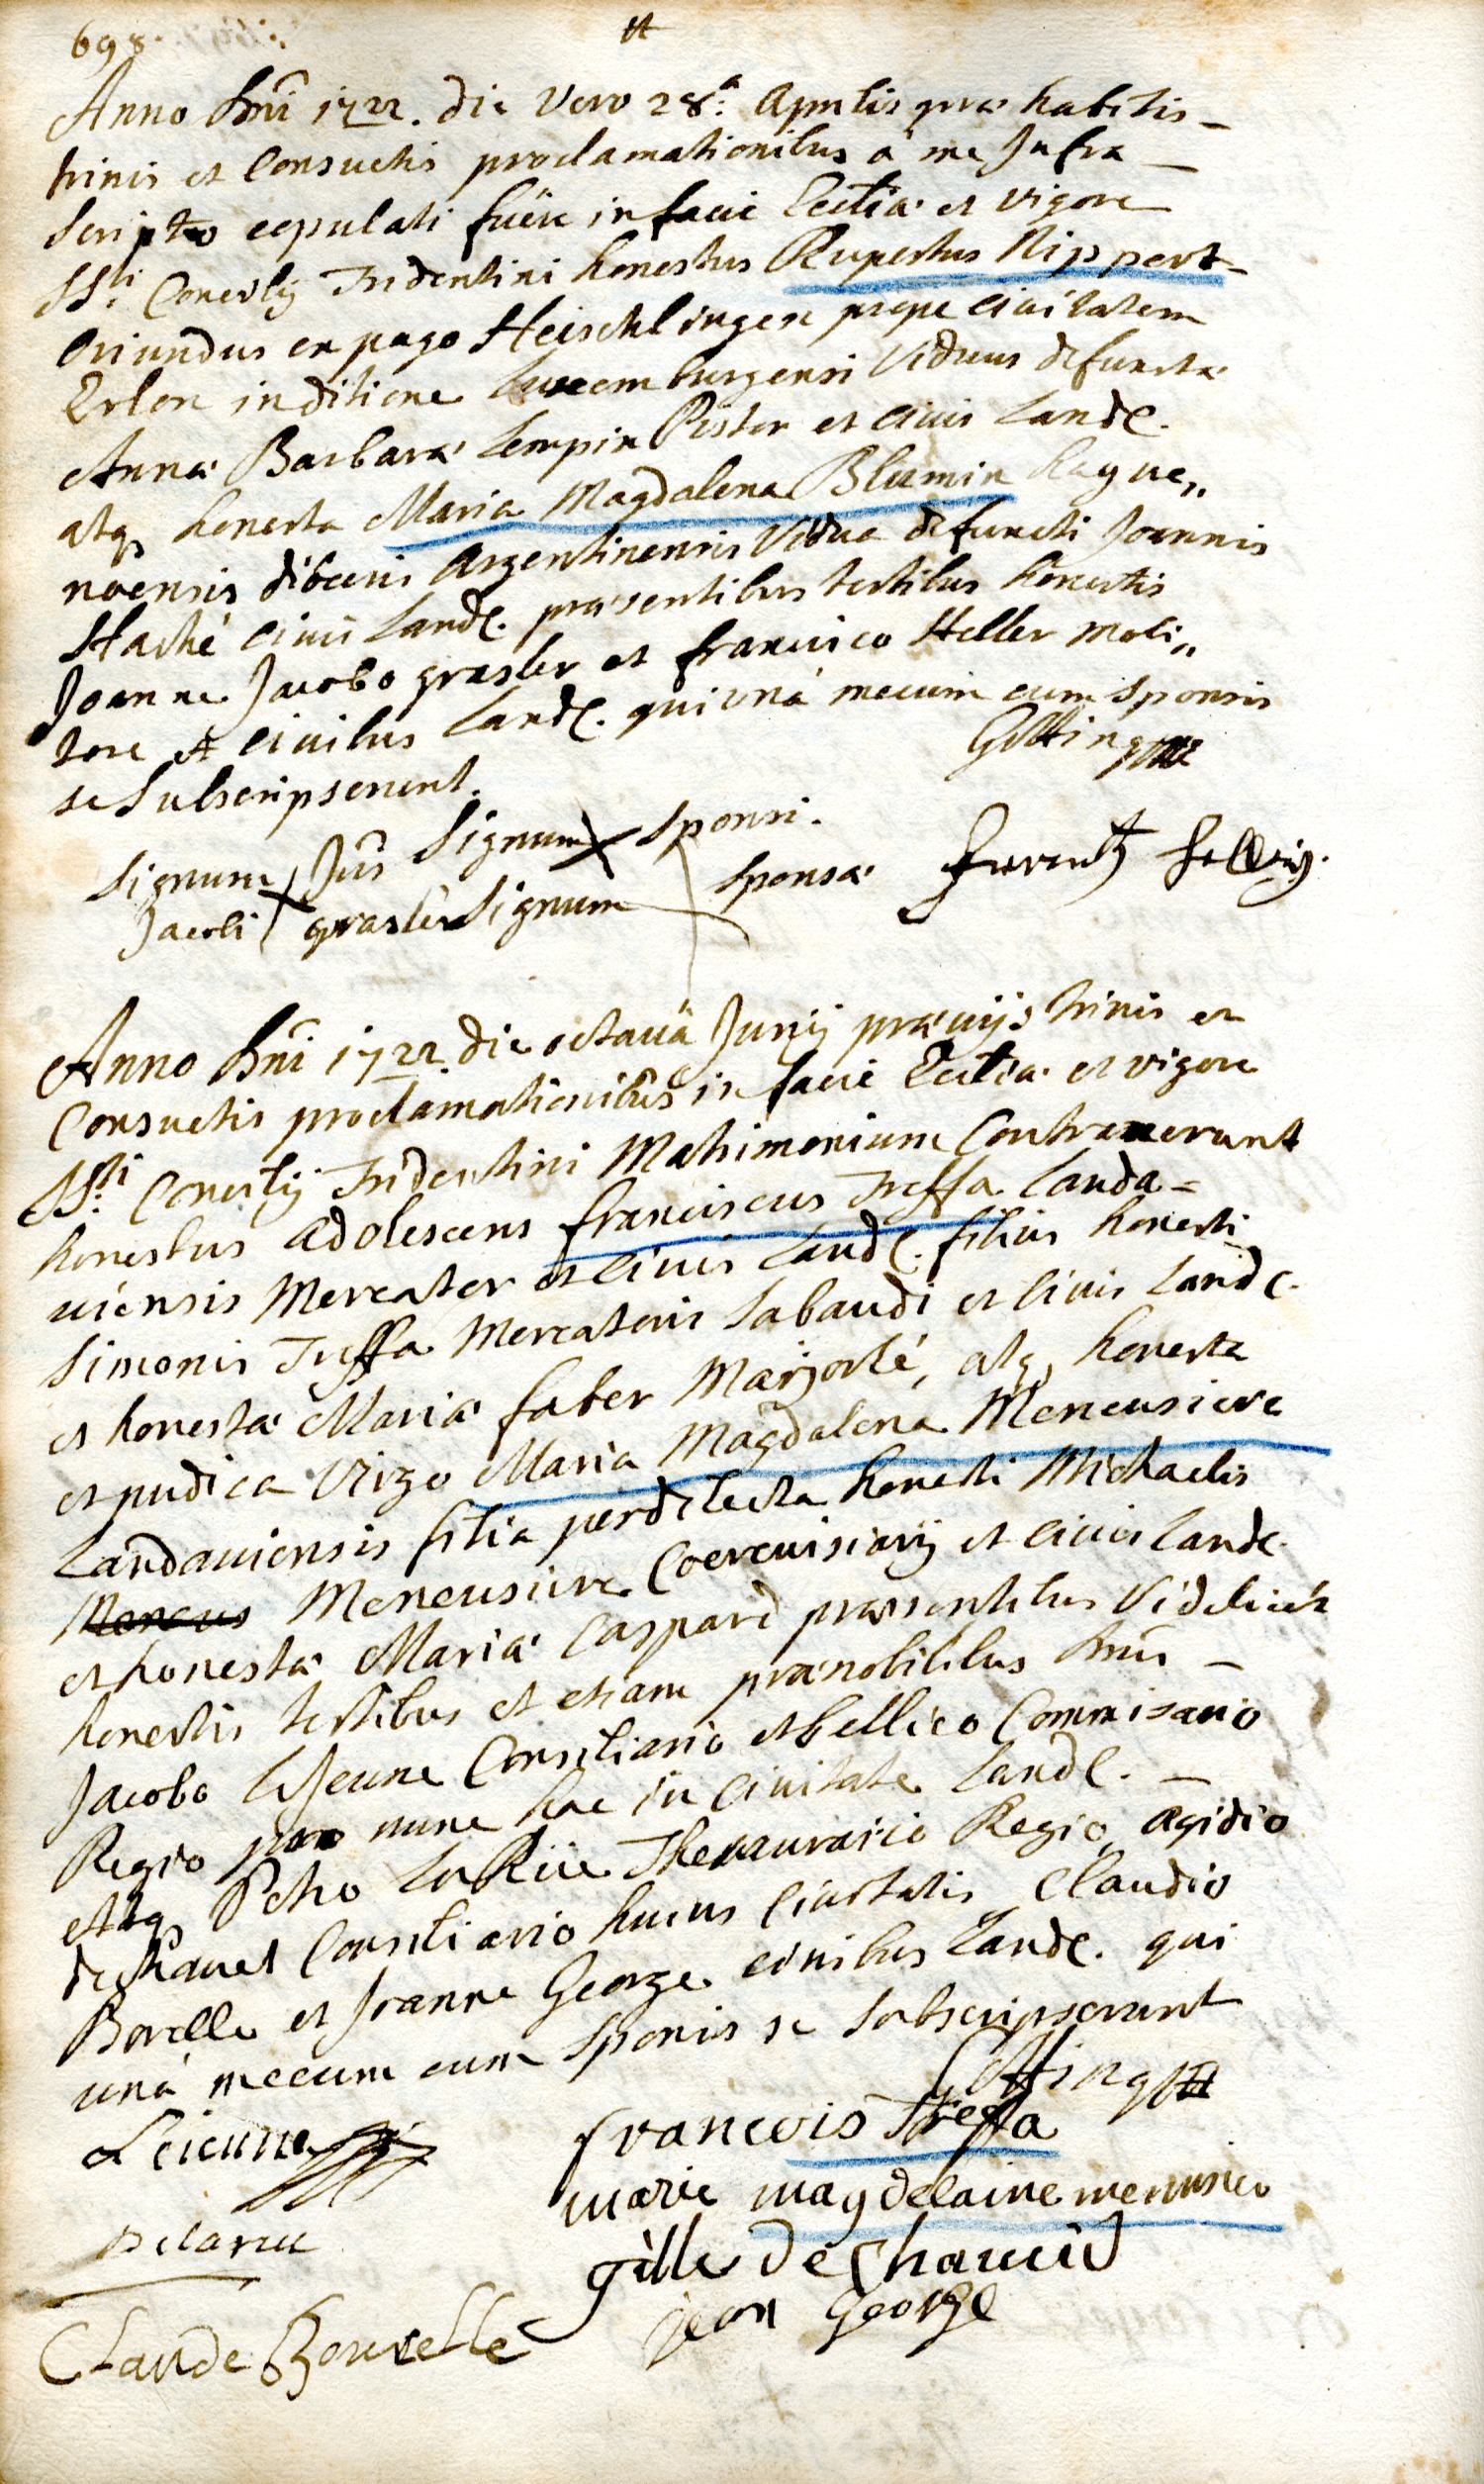 698.
Anno Dni 1722. die vero 28.a Aprilis præ habitis
trinis et Consuetis proclamationibus a me Infra
scripto copulati fuëre in facie Ecctiæ et vigore
SSti. Concilÿ Tridentini honestus Rupertus Nippert
Oriundus ex pago Heischlingen prope civitatem
Erlon in ditione Luxemburgensi Viduus defunctæ
Annæ Barbaræ Lempin Pistor et civis LandC.
atq, honesta Maria Magdalena Blumin hague,,
noensis diöcesis Argentinensis Vidua defuncti Joannis
Haché civis LandC. præsentibus testibus honestis
Joanne Jacobo grasler et francisco Heller moli,,
tore et civibus LandC. qui unà mecum cum sponsis
se Subscripserunt.
Signum X Sponsi.
Signum Jois
Jacobi X grasler Signum X Sponsæ
Anno Dni 1722 die octavâ Junÿ prævÿs trinis et
Consuetis proclamationibus in facie Ecctiæ et vigore
SSti. Concilÿ Tridentini Matrimonium Contraxerunt
honestus adolescens franciscus Treffa Landa=
viensis Mercator et Civis LandC. filius honesti
Simonis Treffa Mercatoris Sabaudi et civis LandC.
et honestæ Mariæ faber Marjorlé, atq, honesta
et pudica Virgo Maria Magdalena Meneusiere
Landaviensis filia perdilecta honesti Michaelis
Meneus Meneusiere Coerevisiarÿ et civis LandC.
et honestæ Mariæ Caspard præsentibus Videlicet
honestis testibus et etiam prænobilibus Dnis
Jacobo LeJeune Consiliario et bellico Commisario
Regio pro nunc hac in civitate LandC.
atq, Petro LaRüe Thesaurario Regio, Ægidio
dechauet Consiliario huius Civitatis, Claudio
Borelle et Joanne George civibus LandC. qui
unà mecum cum Sponsis se Subscripserunt
Leieune
francois Treffa
marie magdelaine
Delarue
gille dechauet
jean George
Claude Bourelle